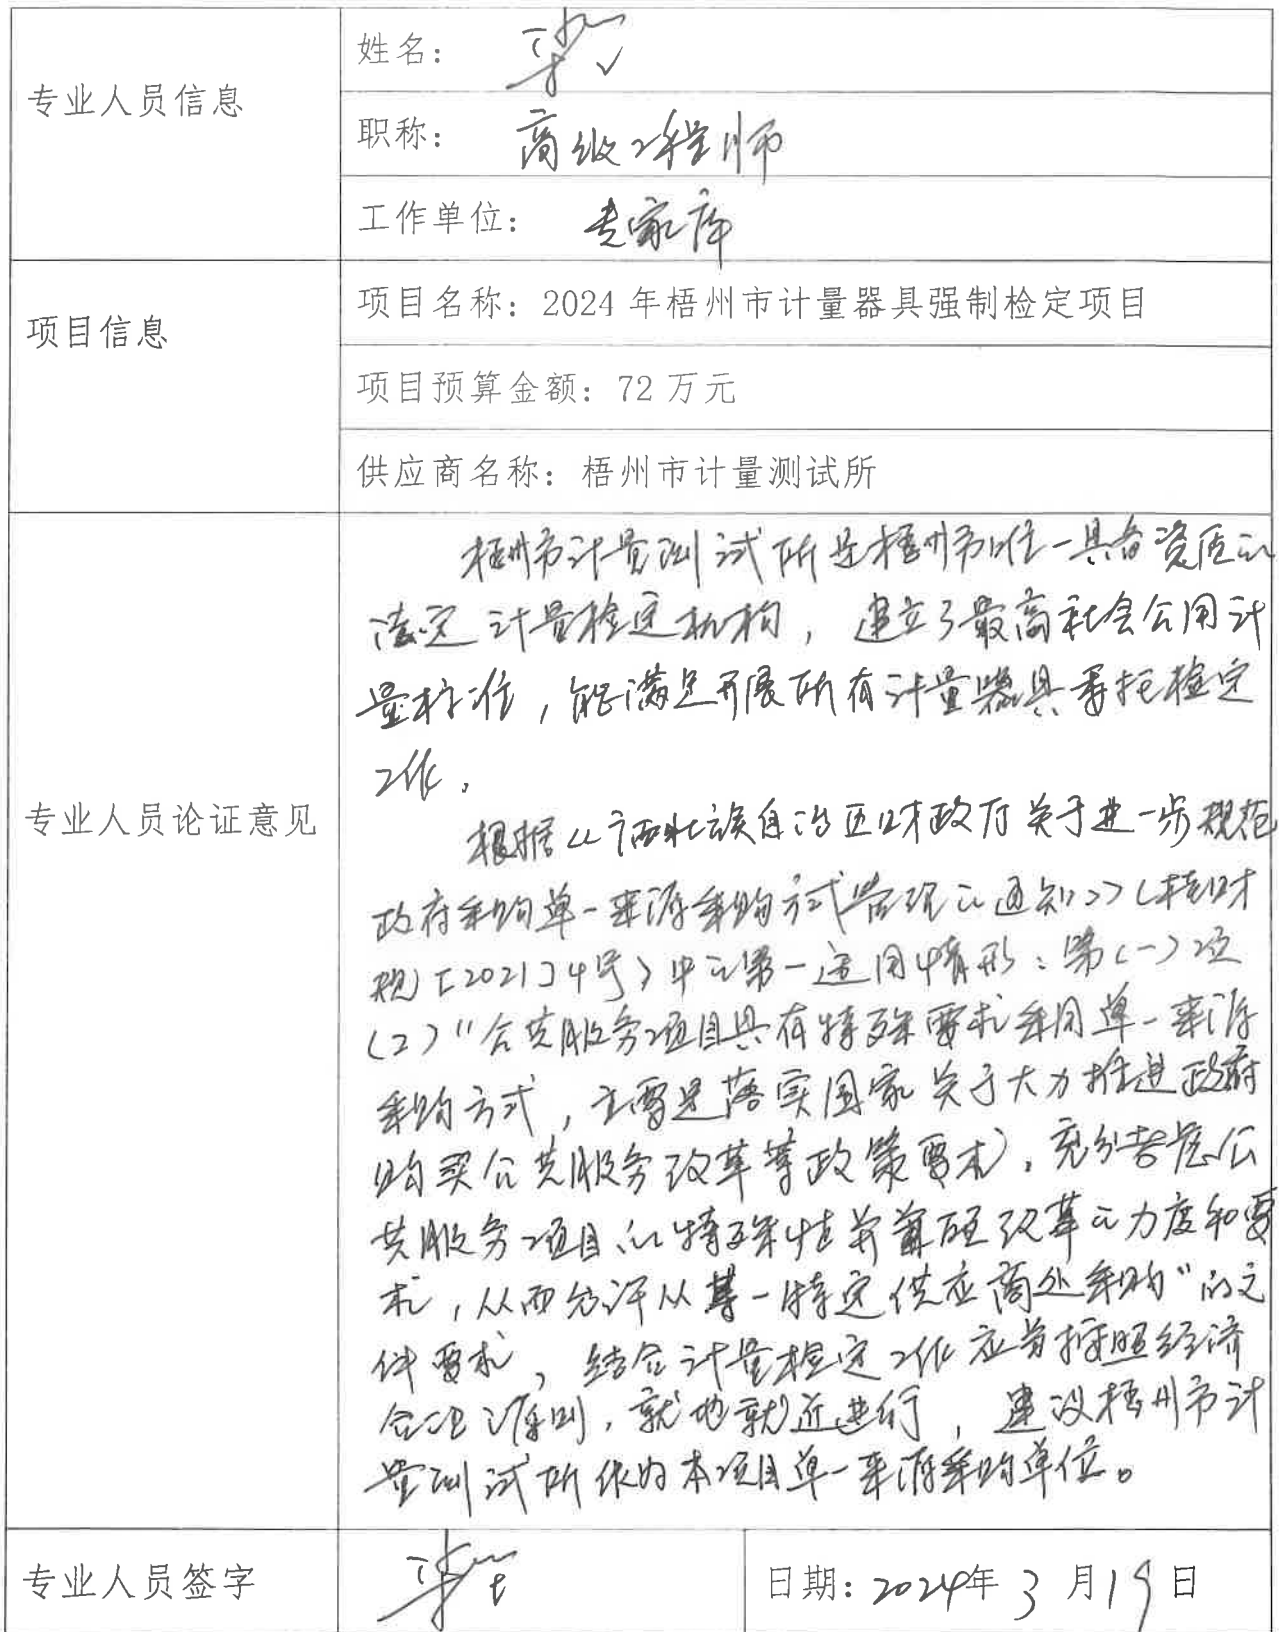 专业人员信息
姓名：
职称： 高级工程师
工作单位： 专家库
项目信息
项目名称：2024 年梧州市计量器具强制检定项目
项目预算金额：72 万元
供应商名称：梧州市计量测试所
专业人员论证意见
梧州市计量测试所是梧州市唯一具备资质的
法定计量检定机构，建立了最高社会公用计
量标准，能满足开展所有计量器具委托检定
工作。
根据《广西壮族自治区财政厅关于进一步规范
政府采购单一来源采购方式管理的通知》（桂财
规〔2021〕4号）中的第一适用情形：第（一）项
（2）“公共服务项目具有特殊要求采用单一来源
采购方式，主要是落实国家关于大力推进政府
购买公共服务改革等政策要求，充分考虑公
共服务项目的特殊性并兼顾改革的力度和要
求，从而允许从某一特定供应商处采购”的文
件要求，结合计量检定工作应当按照经济
合理原则，就地就近进行，建议梧州市计
量测试所作为本项目单一来源采购单位。
专业人员签字
日期：2024年 3 月 19 日